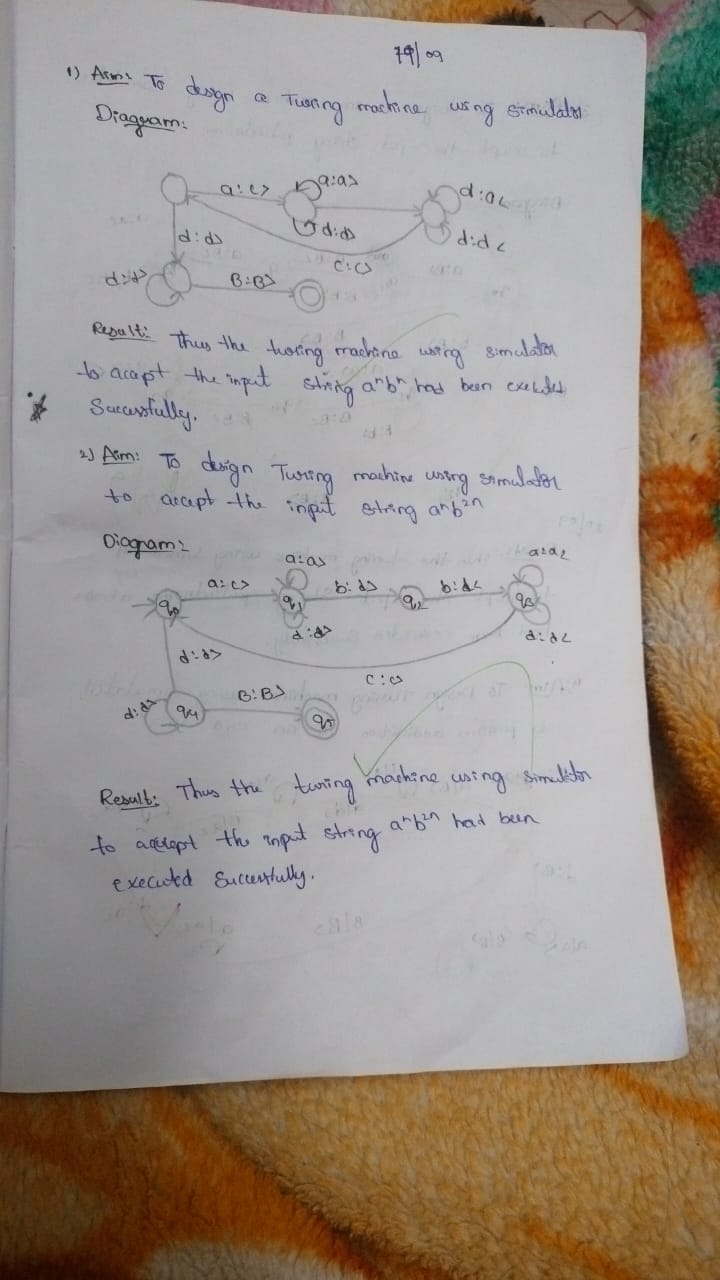 1) Aim: To design a Turing machine using simulator
Diagram:
a:c>
a:a>
d:a<
d:d>
d:d>
d:d<
c:c>
d:d>
B:B>
Result: Thus the turing machine using simulator
to accept the input string aⁿbⁿ had been executed
Successfully.
2) Aim: To design Turing machine using simulator
to accept the input string aⁿb²ⁿ
Diagram:
a:a>
a:a<
a:c>
b:d>
b:d<
q0
q1
q2
q3
d:d>
d:d<
d:d>
c:c>
B:B>
d:d>
q4
q5
Result: Thus the turing machine using simulator
to accept the input string aⁿb²ⁿ had been
executed Successfully.